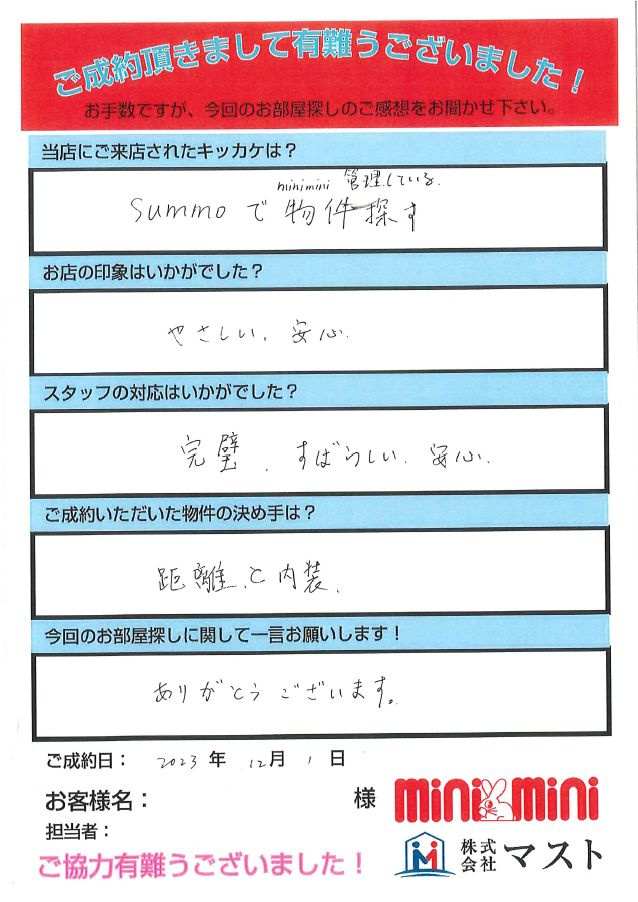 ご成約頂きまして有難うございました！
お手数ですが、今回のお部屋探しのご感想をお聞かせ下さい。
当店にご来店されたキッカケは？
minimini 管理している
summoで物件探す
お店の印象はいかがでした？
やさしい、安心
スタッフの対応はいかがでした？
完璧、すばらしい、安心
ご成約いただいた物件の決め手は？
距離、と内装、
今回のお部屋探しに関して一言お願いします！
ありがとうございます。
ご成約日： 2023 年 12月 1 日
お客様名： 様
担当者：
ご協力有難うございました！
mini mini
株式会社 マスト